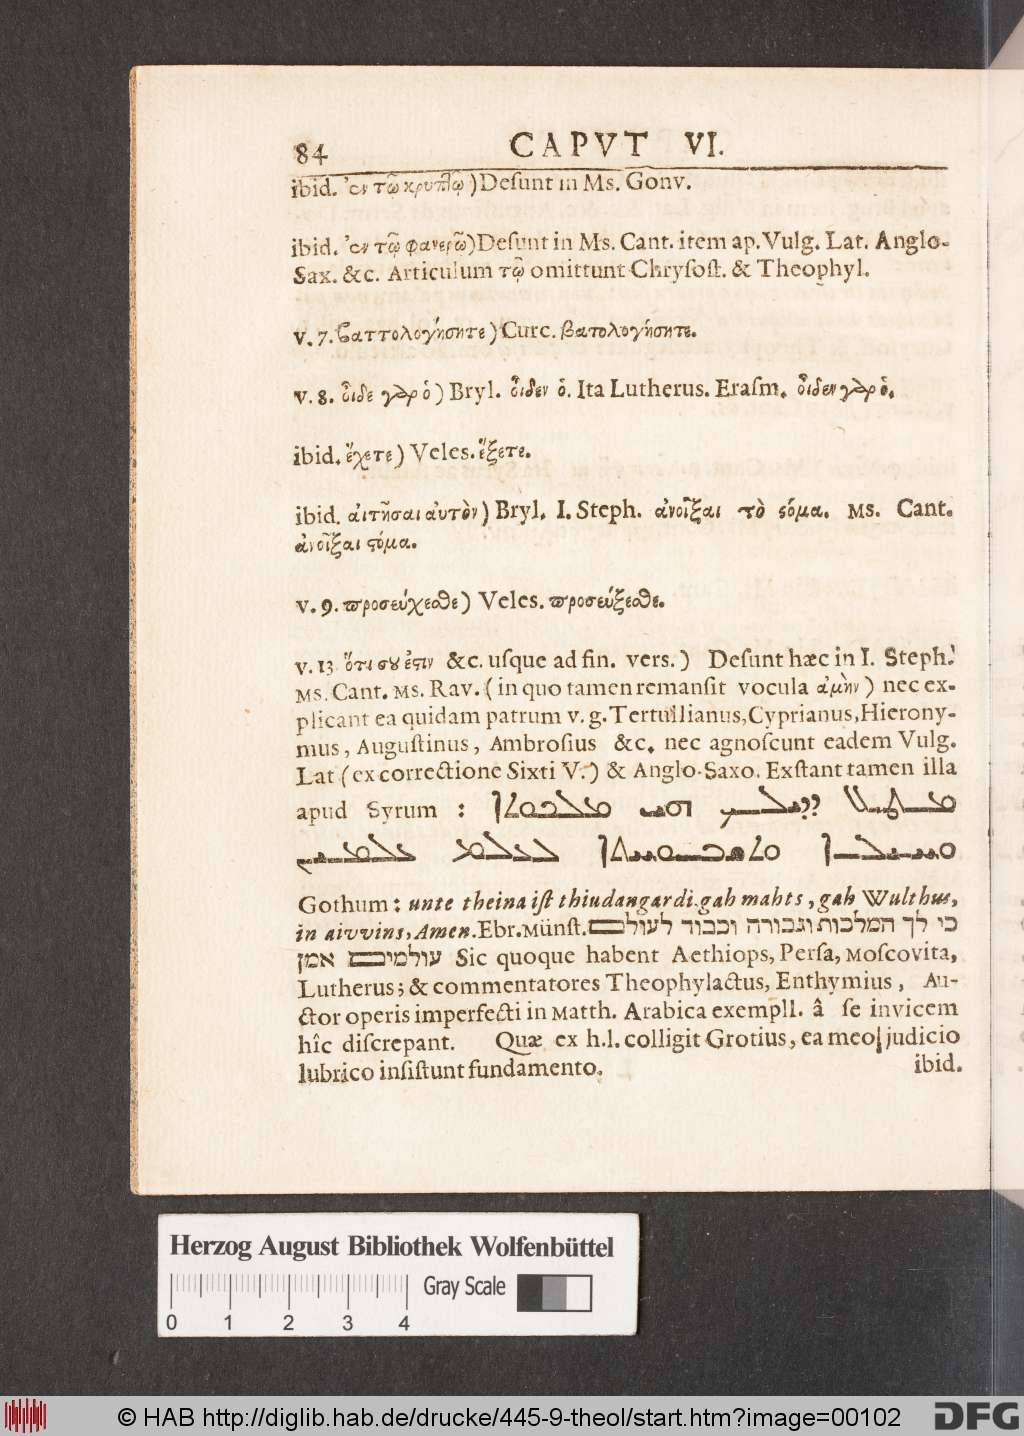 84 CAPVT VI.
ibid. ἐν τῷ κρυπτῷ) Deſunt in Ms. Gonv.
ibid. ἐν τῷ φανερῷ) Deſunt in Ms. Cant. item ap. Vulg. Lat. Anglo-
Sax. &c. Articulum τῷ omittunt Chryſoſt. & Theophyl.
v. 7. βαττολογήσητε) Curc. βατολογήσητε.
v. 8. οἶδε γὰρ ὁ) Bryl. οἶδεν ὁ. Ita Lutherus. Eraſm. οἶδεν γὰρ ὁ.
ibid. ἔχετε) Veles. ἕξετε.
ibid. αἰτῆσαι αὐτὸν) Bryl. I. Steph. ἀνοῖξαι τὸ ϛόμα. Ms. Cant.
ἀνοῖξαι ϛόμα.
v. 9. προσεύχεσθε) Veles. προσεύξεσθε.
v. 13 ὅτι σου ἐϛιν &c. uſque ad fin. vers.) Deſunt hæc in I. Steph.
Ms. Cant. Ms. Rav. (in quo tamen remanſit vocula ἀμὴν) nec ex-
plicant ea quidam patrum v. g. Tertullianus, Cyprianus, Hierony-
mus, Auguſtinus, Ambroſius &c. nec agnoſcunt eadem Vulg.
Lat (ex correctione Sixti V.) & Anglo-Saxo. Exſtant tamen illa
apud Syrum : ܡܛܠ ܕܕܝܠܟ ܗܝ ܡܠܟܘܬܐ
ܘܚܝܠܐ ܘܬܫܒܘܚܬܐ ܠܥܠܡ ܥܠܡܝܢ
Gothum: unte theina iſt thiudangardi. gah mahts, gah Wulthus,
in aivvins, Amen. Ebr. Münſt. כי לך המלכות וגבורה וכבוד לעולם
עולמים אמן Sic quoque habent Aethiops, Perſa, Moſcovita,
Lutherus; & commentatores Theophylactus, Enthymius, Au-
ctor operis imperfecti in Matth. Arabica exempll. â ſe invicem
hîc diſcrepant. Quæ ex h. l. colligit Grotius, ea meo judicio
lubrico inſiſtunt fundamento. ibid.
Herzog August Bibliothek Wolfenbüttel
Gray Scale
0 1 2 3 4
© HAB http://diglib.hab.de/drucke/445-9-theol/start.htm?image=00102 DFG